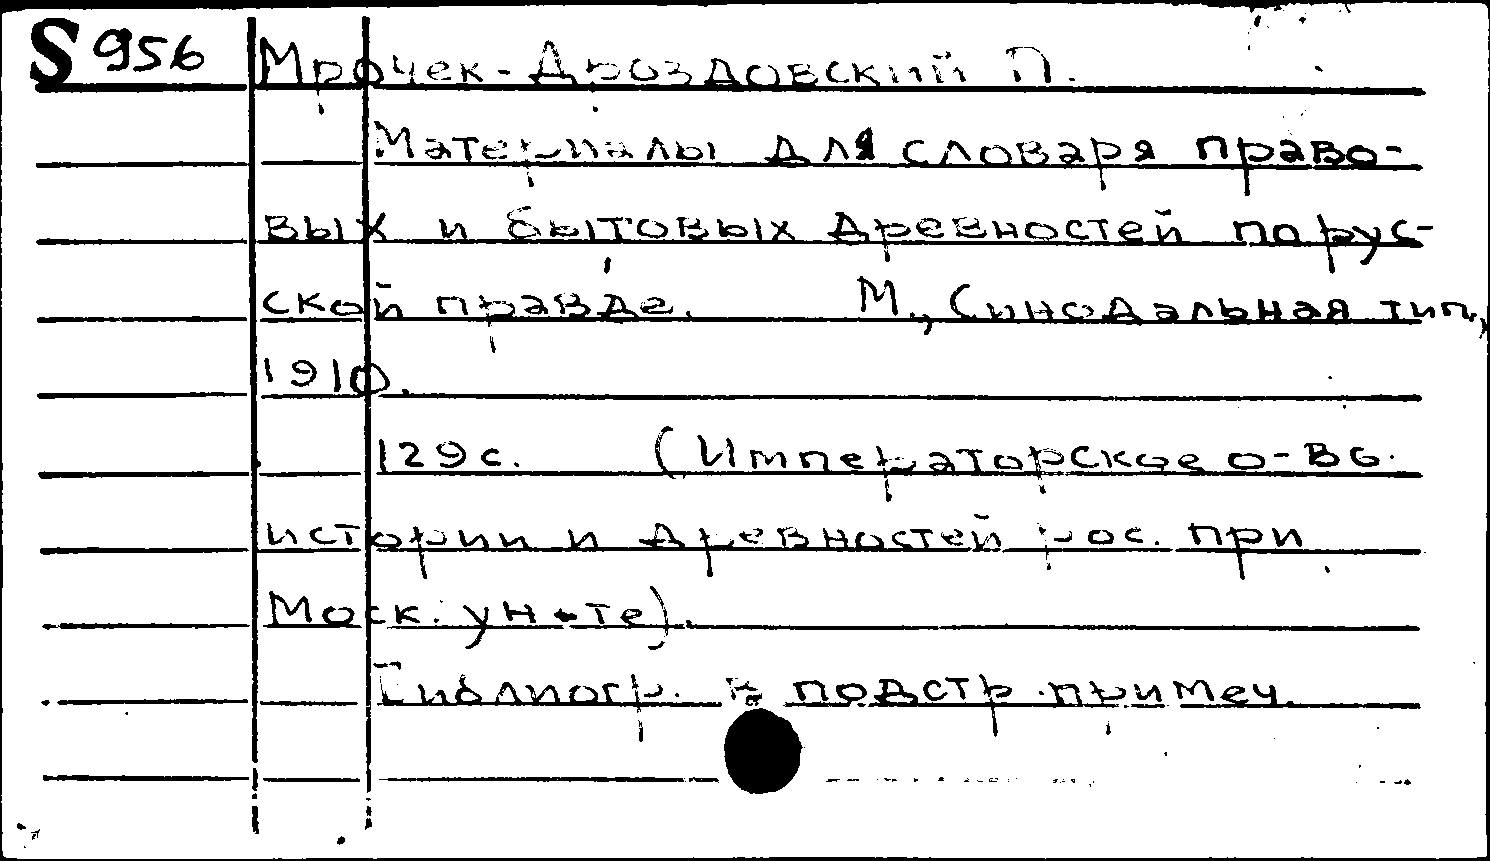 S 956 Мрочек-Дроздовский П.
Материалы для словаря право-
вых и бытовых древностей по рус-
ской правде. М., Синодальная тип.,
1910.
129 с. (Императорское о-во.
истории и древностей рос. при
Моск. ун-те).
Библиогр. в подстр. примеч.